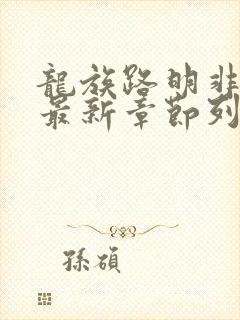 龍族路明非
最新章節列
孫碩